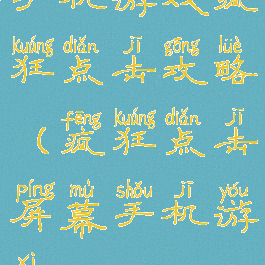 手机游戏疯
kuáng diǎn jī gōng lüè
狂点击攻略
fēng kuáng diǎn jī
（疯狂点击
píng mù shǒu jī yóu
屏幕手机游
xì